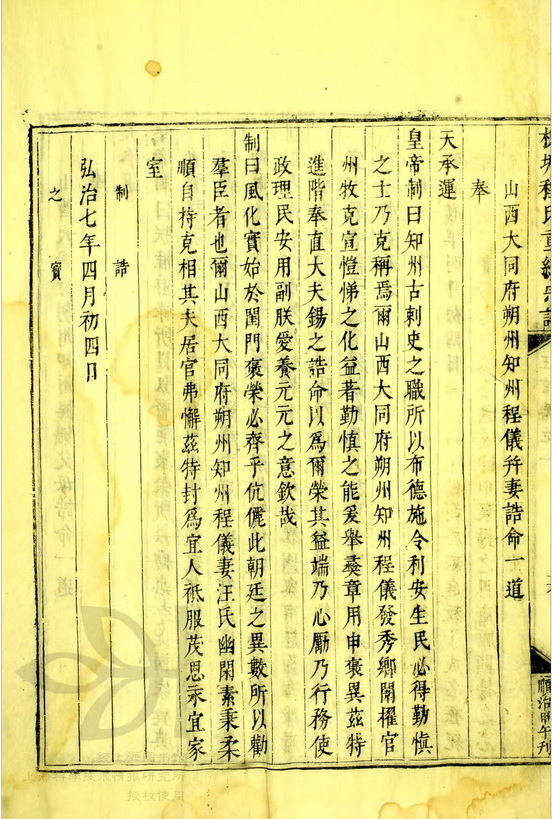 程氏重編
山西大同府朔州知州程儀并妻誥命一道
奉
天承運
皇帝制曰知州古刺史之職所以布德施令利安生民必得勤慎
之士乃克稱焉爾山西大同府朔州知州程儀發秀鄉闈擢官
州牧克宣愷悌之化益著勤慎之能爰舉彝章用申褒異茲特
進階奉直大夫錫之誥命以爲爾榮其益端乃心勵乃行務使
政理民安用副朕愛養元元之意欽哉
制曰風化實始於閨門褒榮必齊乎伉儷此朝廷之異數所以勸
羣臣者也爾山西大同府朔州知州程儀妻汪氏幽閑素秉柔
順自持克相其夫居官弗懈茲特封爲宜人祗服茂恩永宜家
室
制誥
弘治七年四月初四日
之寶
順治 午刊
授權使用